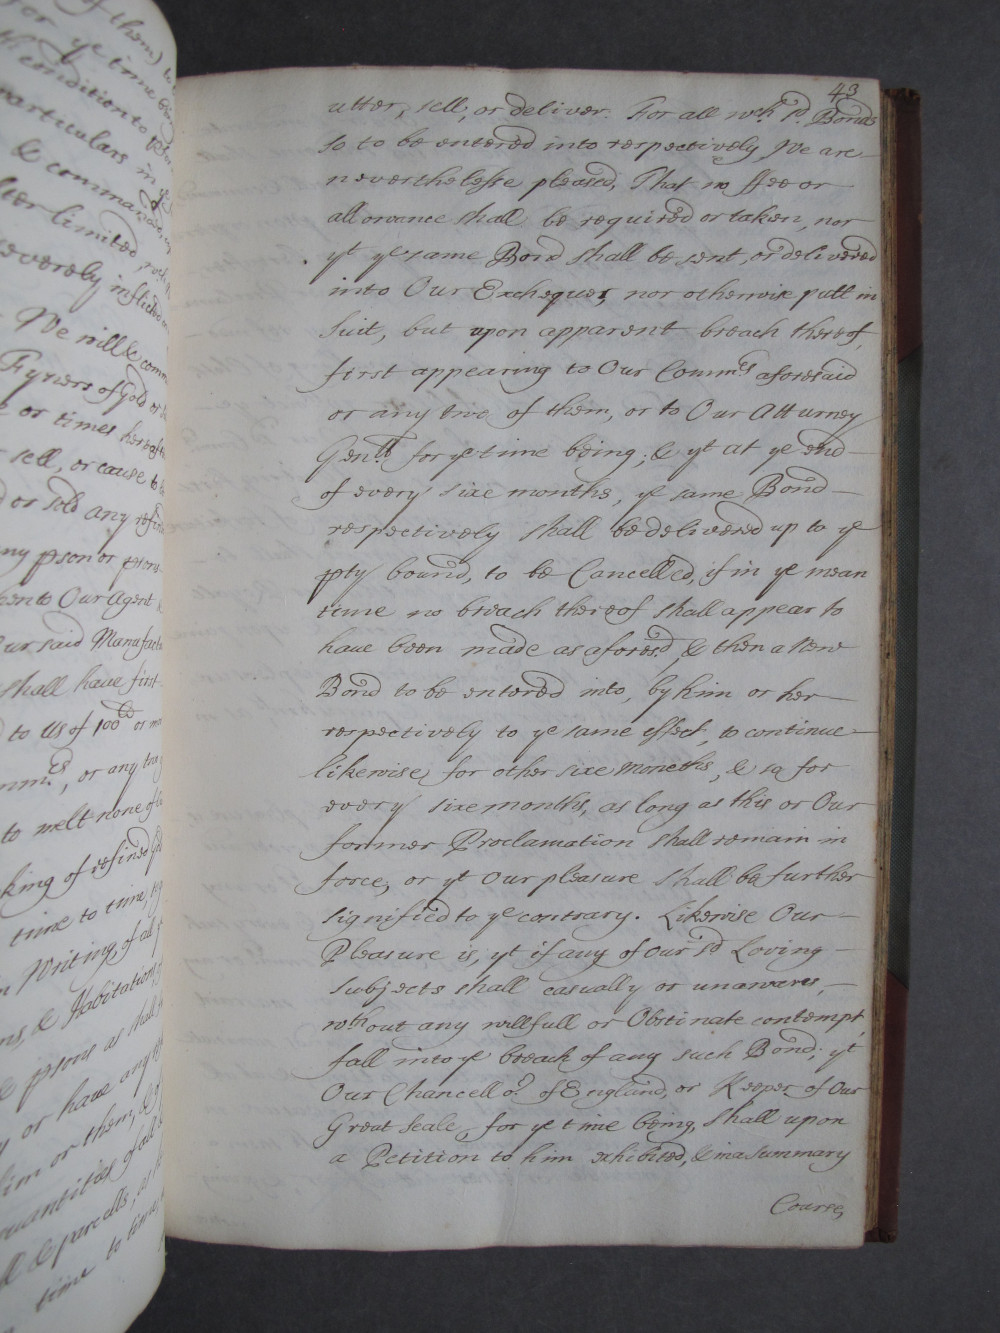 of them) to
for ye time being
th condition to
particulars in
& commanded, up
after limited,
severely inflicted
We will & comm
Fyners of Gold or
e or times hereafte
sell, or cause to
d or sold any refin
ny pson or psons
then to Our Agent
Our said Manufact
shall have first
to Us of 100
omms, or any two
to melt none of
king of refined
time to time,
in Writing, of all
ns, & Habitations
& psons as shall
y or have any
him or them, & of
quantities of all
ll & parcells, as
time to time
43
utter, sell, or deliver. For all wch sd Bonds
so to be entered into respectively We are
neverthelesse pleased, That no ffee or
allowance shall be required or taken, nor
yt ye same Bond shall be sent, or delivered
into Our Exchequer, nor otherwise putt in
suit, but upon apparent breach thereof,
first appearing to Our Comms aforesaid
or any two of them, or to Our Atturney
Genll for ye time being; & yt at ye end
of every sixe months, ye same Bond
respectively shall be delivered up to ye
pty bound, to be Cancelled, if in ye mean
time no breach thereof shall appear to
have been made as aforesd, & then a New
Bond to be entered into, by him or her
respectively to ye same effect, to continue
likewise for other sixe moneths, & so for
every sixe months, as long as this or Our
former Proclamation shall remain in
force, or yt our pleasure shall be further
signified to ye contrary. Likewise Our
Pleasure is, yt if any of our sd Loving
Subjects shall casually or unawares,
wthout any willfull or Obstinate contempt,
fall into ye breach of any such Bond; yt
Our Chancellor of England, or Keeper of Our
Great Seale, for ye time being, shall upon
a Petition to him exhibited, & in a summary
Course,